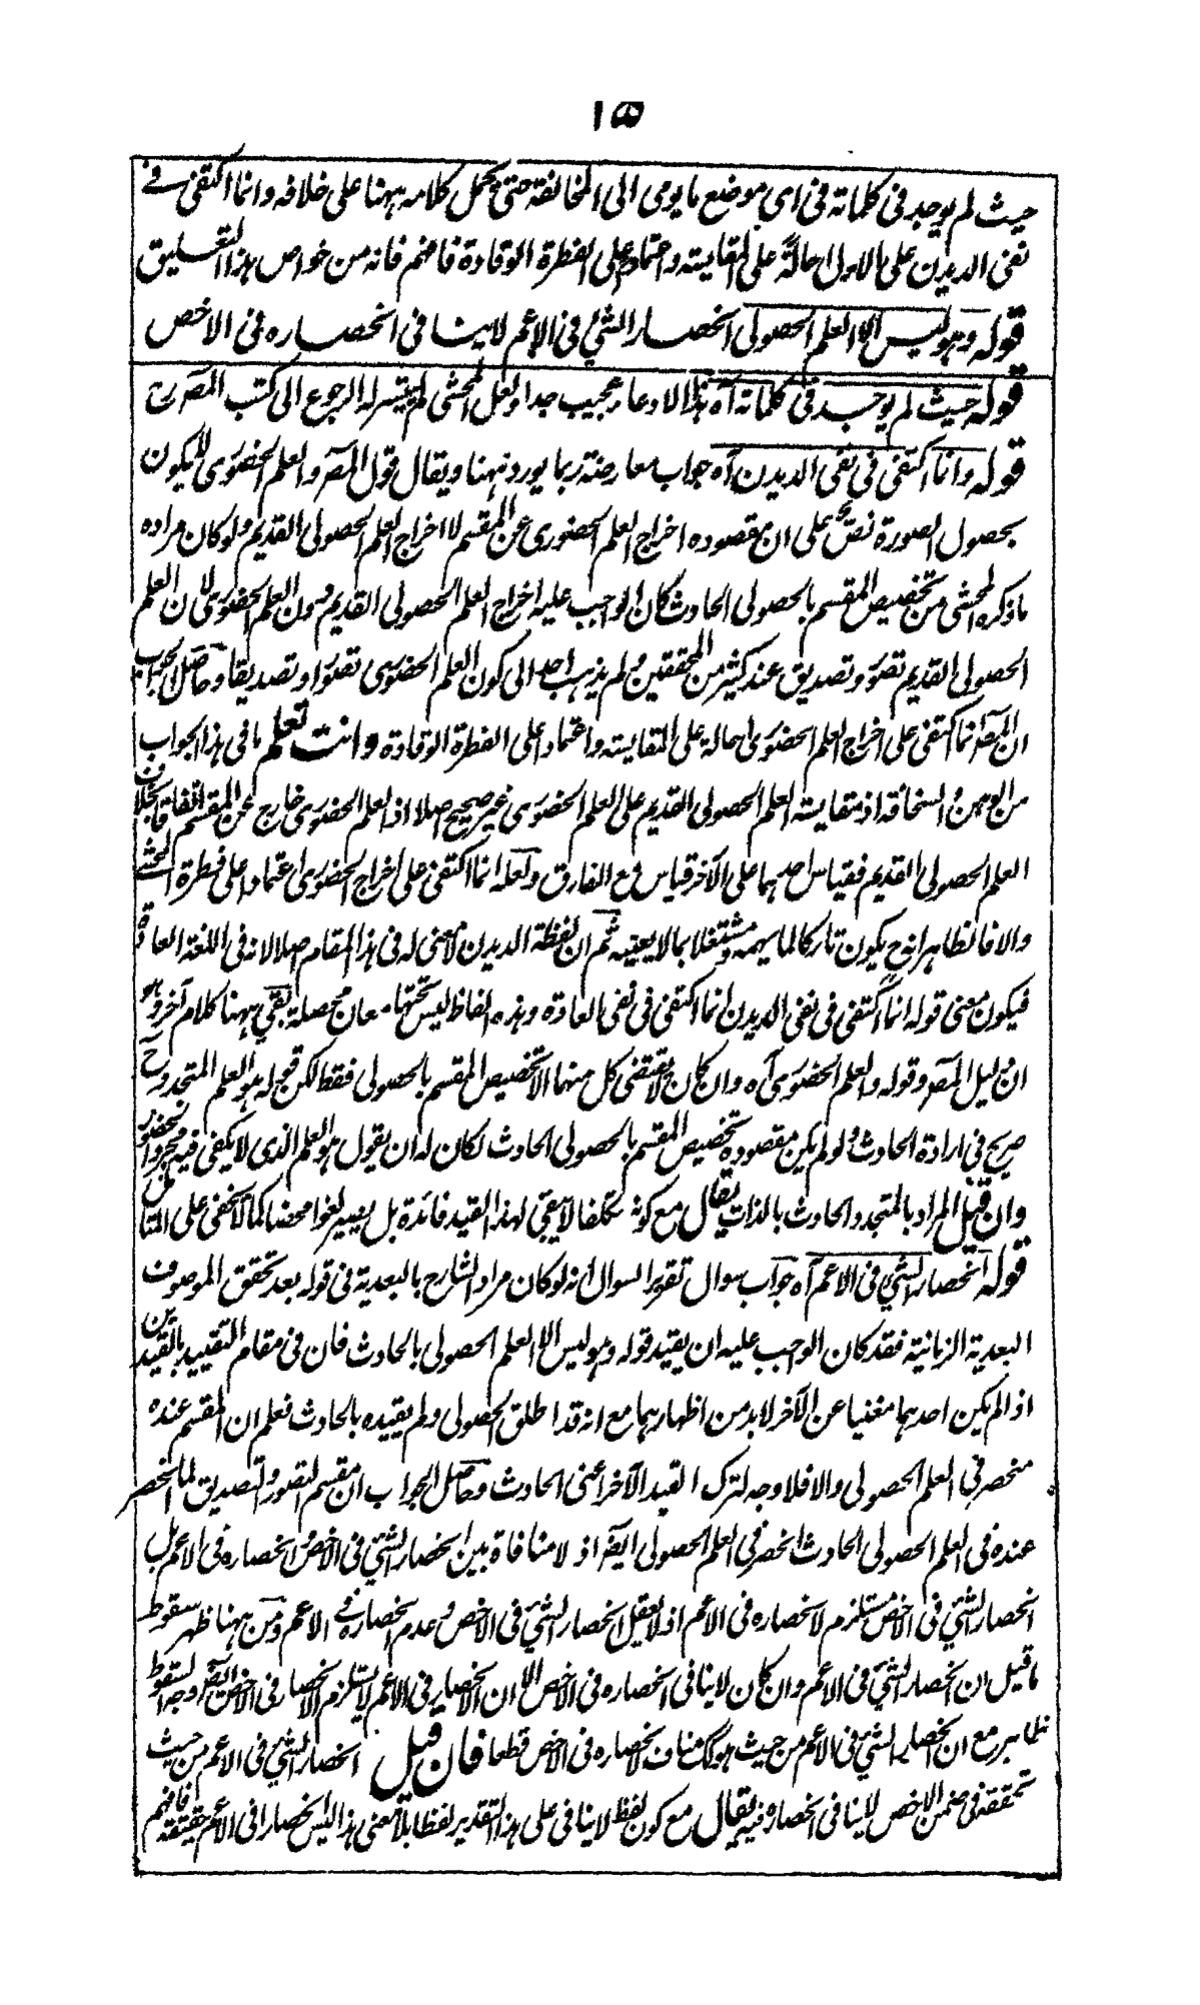 ١٥
حيث لم يوجد فى كلماته فى اى موضع ما يومى الى المخالفة حتى يحمل كلامه ههنا على خلافه وانما اكتفى فى
نفى الديدن على الاول احالة على المقايسة واعتمادا على الفطرة الوقادة فافهم فانه من خواص هذا التعليق
قوله وهو ليس الا العلم الحصولى انحصار الشئ فى الاعم لاينافى انحصاره فى الاخص
قوله حيث لم يوجد فى كلماته آه هذا الادعاء عجيب جدا ولعل المحشى لم يتيسر له الرجوع الى كتب المصـ رح
قوله وانما اكتفى فى نفى الديدن آه جواب معارضة ربما يورد ههنا ويقال قول المصـ والعلم الحضورى لايكون
بحصول الصورة نص على ان مقصوده اخراج العلم الحضورى عن المقسم لا اخراج العلم الحصولى القديم ولو كان مراده
ما ذكره المحشى من تخصيص المقسم بالحصولى الحادث كان الواجب عليه اخراج العلم الحصولى القديم دون العلم الحضورى لان العلم
الحصولى القديم تصور وتصديق عند كثير من المحققين ولم يذهب احد الى كون العلم الحضورى تصورا وتصديقا وحاصل الجواب
ان المصـ انما اكتفى على اخراج العلم الحضورى احالة على المقايسة واعتمادا على الفطرة الوقادة وانت تعلم ما فى هذا الجواب
من الوهن والسخافة اذ مقايسة العلم الحصولى القديم على العلم الحضورى غير صحيح اصلا اذ العلم الحضورى خارج عن المقسم اتفاقا بخلاف
العلم الحصولى القديم فقياس احدهما على الآخر قياس مع الفارق ولعله انما اكتفى على اخراج الحضورى اعتمادا على فطرة المحشى
والا فالظاهر انه ح يكون تاركا لما يهمه ومشتغلا بما لا يعنيه ثم ان لفظة الديدن لا معنى له فى هذا المقام اصلا لانه فى اللغة العادة
فيكون معنى قوله انما اكتفى فى نفى الديدن انما اكتفى فى نفى العادة وهذه الفاظ ليس تحتها معان محصلة بقى ههنا كلام آخر وهو
ان دليل المصـ وقوله والعلم الحضورى آه وان كان لا يقتضى كل منهما الا تخصيص المقسم بالحصولى فقط لكن قوله هو العلم المتجدد ح
صريح فى ارادة الحادث ولو لم يكن مقصوده تخصيص المقسم بالحصولى الحادث لكان له ان يقول هو العلم الذى لا يكفى فيه مجرد الحضور
وان قيل المراد بالمتجدد الحادث بالذات يقال مع كونه تكلفا لا يبقى لهذا القيد فائدة بل يصير لغوا محضا كما لا يخفى على المتامل
قوله انحصار الشئ فى الاعم آه جواب سوال تقرير السوال انه لو كان مراد الشارح بالبعدية فى قوله بعد تحقق الموصوف
البعدية الزمانية فقد كان الواجب عليه ان يقيد قوله وهو ليس الا العلم الحصولى بالحادث فان فى مقام التقييد بالقيدين
اذا لم يكن احدهما مغنيا عن الآخر لابد من اظهارهما مع انه قد اطلق الحصولى ولم يقيده بالحادث فعلم ان المقسم عنده
منحصر فى العلم الحصولى والا فلا وجه لترك القيد الآخر اعنى الحادث وحاصل الجواب ان مقسم التصور والتصديق لما انحصر
عنده فى العلم الحصولى الحادث انحصر فى العلم الحصولى ايضا اذ لا منافاة بين انحصار الشئ فى الاخص وانحصاره فى الاعم بل
انحصار الشئ فى الاخص مستلزم لانحصاره فى الاعم اذ لا يعقل انحصار الشئ فى الاخص وعدم انحصاره فى الاعم ومن ههنا ظهر سقوط
ما قيل ان انحصار الشئ فى الاعم وان كان لا ينافى انحصاره فى الاخص الا ان الانحصار فى الاعم لا يستلزم الانحصار فى الاخص ايضا ووجه السقوط
ظاهر مع ان انحصار الشئ فى الاعم من حيث هو كك مناف لانحصاره فى الاخص قطعا فان قيل انحصار الشئ فى الاعم من حيث
تحققه فى ضمن الاخص لا ينافى انحصاره فيه يقال مع كون لفظ لا ينافى على هذا التقدير لفظا بلا معنى هذا ليس انحصارا فى الاعم حقيقة فافهم